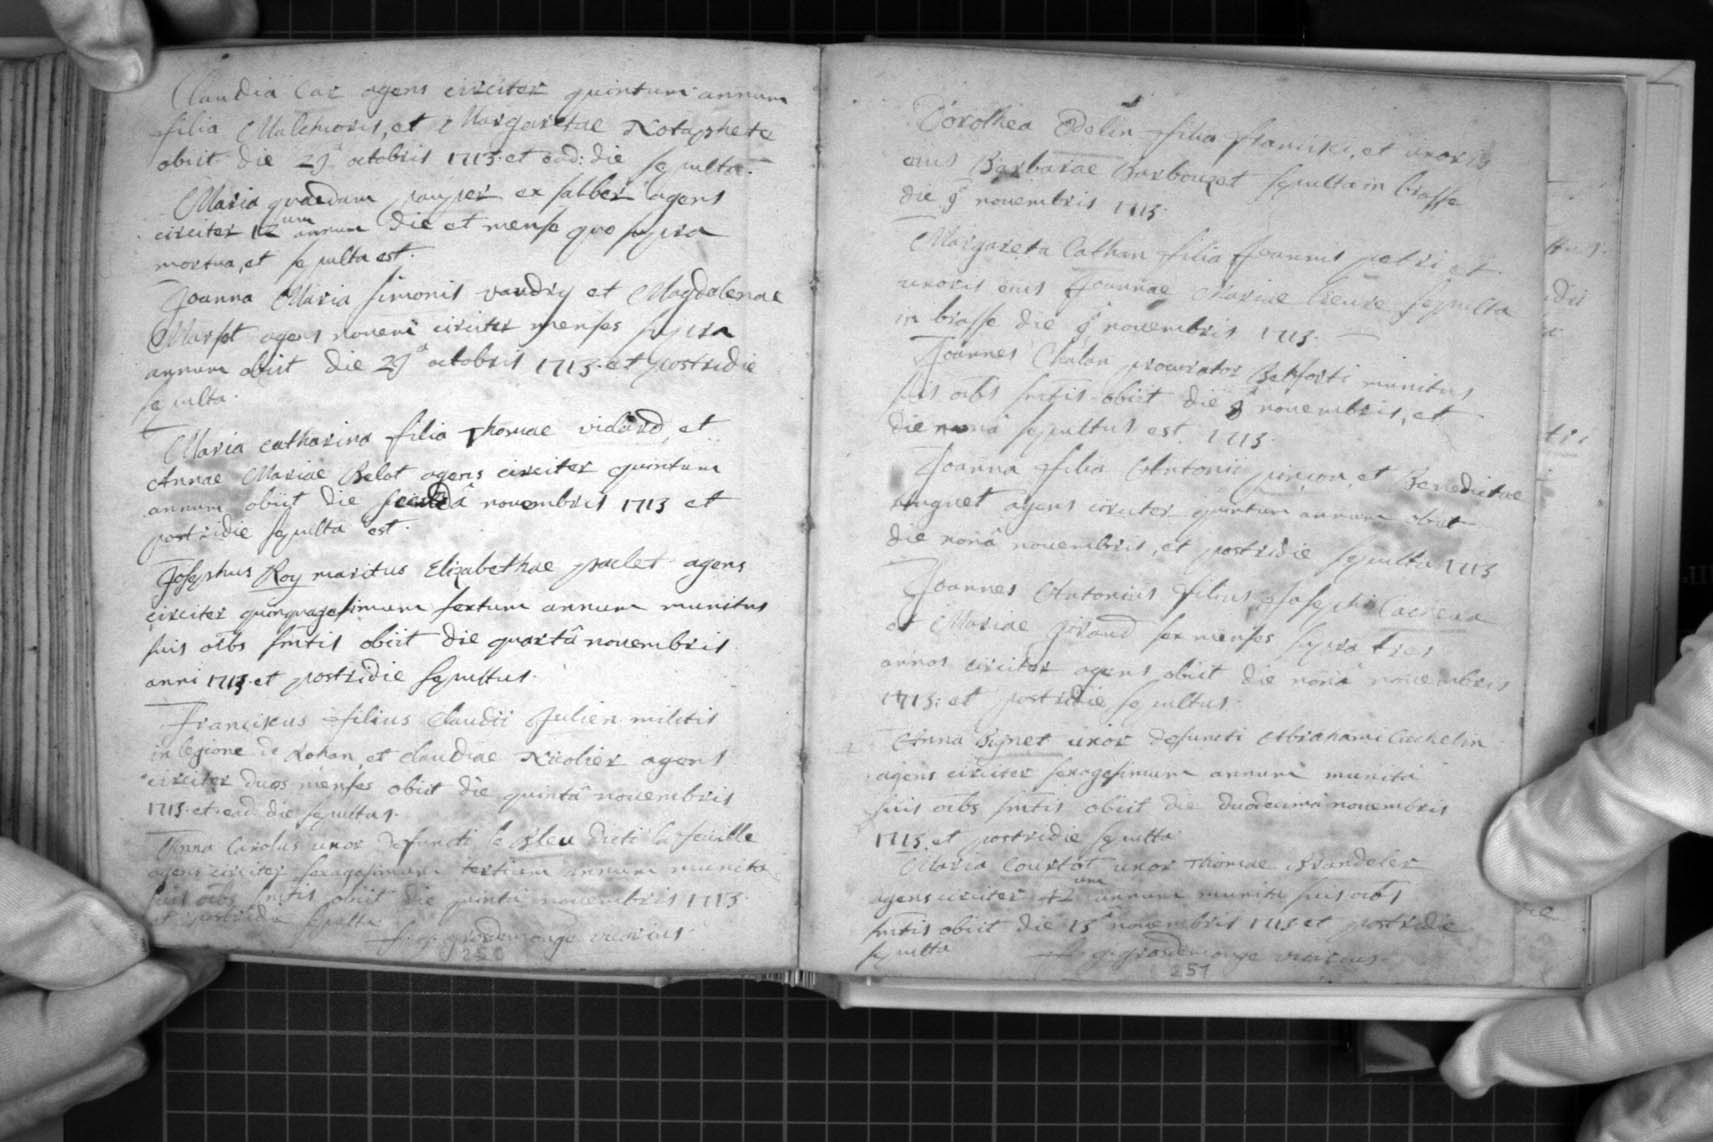 Claudia Car agens circiter quintum annum
filia Malchioris, et Margaretae Notaphete
obiit die 29â octobris 1713. et ead: die sepulta.
Maria quaedam pauper ex salber agens
circiter 12um annum die et mense quo supra
mortua, et sepulta est.
Joanna Maria Simonis vaudry et Magdalenae
Marsot agens novem circiter menses supra
annum obiit die 29a octobris 1713. et postridie
sepulta.
Maria catharina filia Thomae vidard, et
Annae Mariae Belot agens circiter quintum
annum obiit die secundâ novembris 1713 et
postridie sepulta est.
Josephus Roy maritus Elizabethae paclet agens
circiter quinquagesimum sextum annum munitus
suis oībs smtis obiit die quartâ novembris
anni 1713. et postridie sepultus.
Franciscus filius Claudii Julien militis
in legione de Rohan, et claudiae Nicolier agens
circiter duos menses obiit die quintâ novembris
1713. et ead. die sepultus.
Anna Carolus uxor defuncti le Bleu dicti la feuille
agens circiter sexagesimum tertium annum munita
suis oībs smtis obiit die quintâ novembris 1713.
et postridie sepulta.
grosdemonge vicarius.
250
Dorothea Edelin filia francisci, et uxoris
eius Barbarae Barbouzet sepulta in brasse
die 9a novembris 1713.
Margareta Cathan filia Joannis petri et
uxoris eius Joannae Mariae lieure sepulta
in brasse die 9a novembris 1713.
Joannes Chalan procurator Belsforti munitus
suis oībs smtis obiit die 8a novembris, et
die nonâ sepultus est. 1713.
Joanna filia Antonii poincon, et Benedictae
mugnet agens circiter quintum annum obiit
die nonâ novembris, et postridie sepulta 1713
Joannes Antonius filius Josephi Cachera
et Mariae giraud sex menses supra tres
annos circiter agens obiit die nonâ novembris
1713. et postridie sepultus.
Anna Bignet uxor defuncti Abrahami Cuchelin
agens circiter sexagesimum annum munita
suis oībs smtis obiit die duodecimâ novembris
1713. et postridie sepulta
Maria Courtot uxor Thomae Brandeler
agens circiter 42um annum munita suis oībs
smtis obiit die 13a novembris 1713 et postridie
sepulta
grosdemonge vicarius.
251